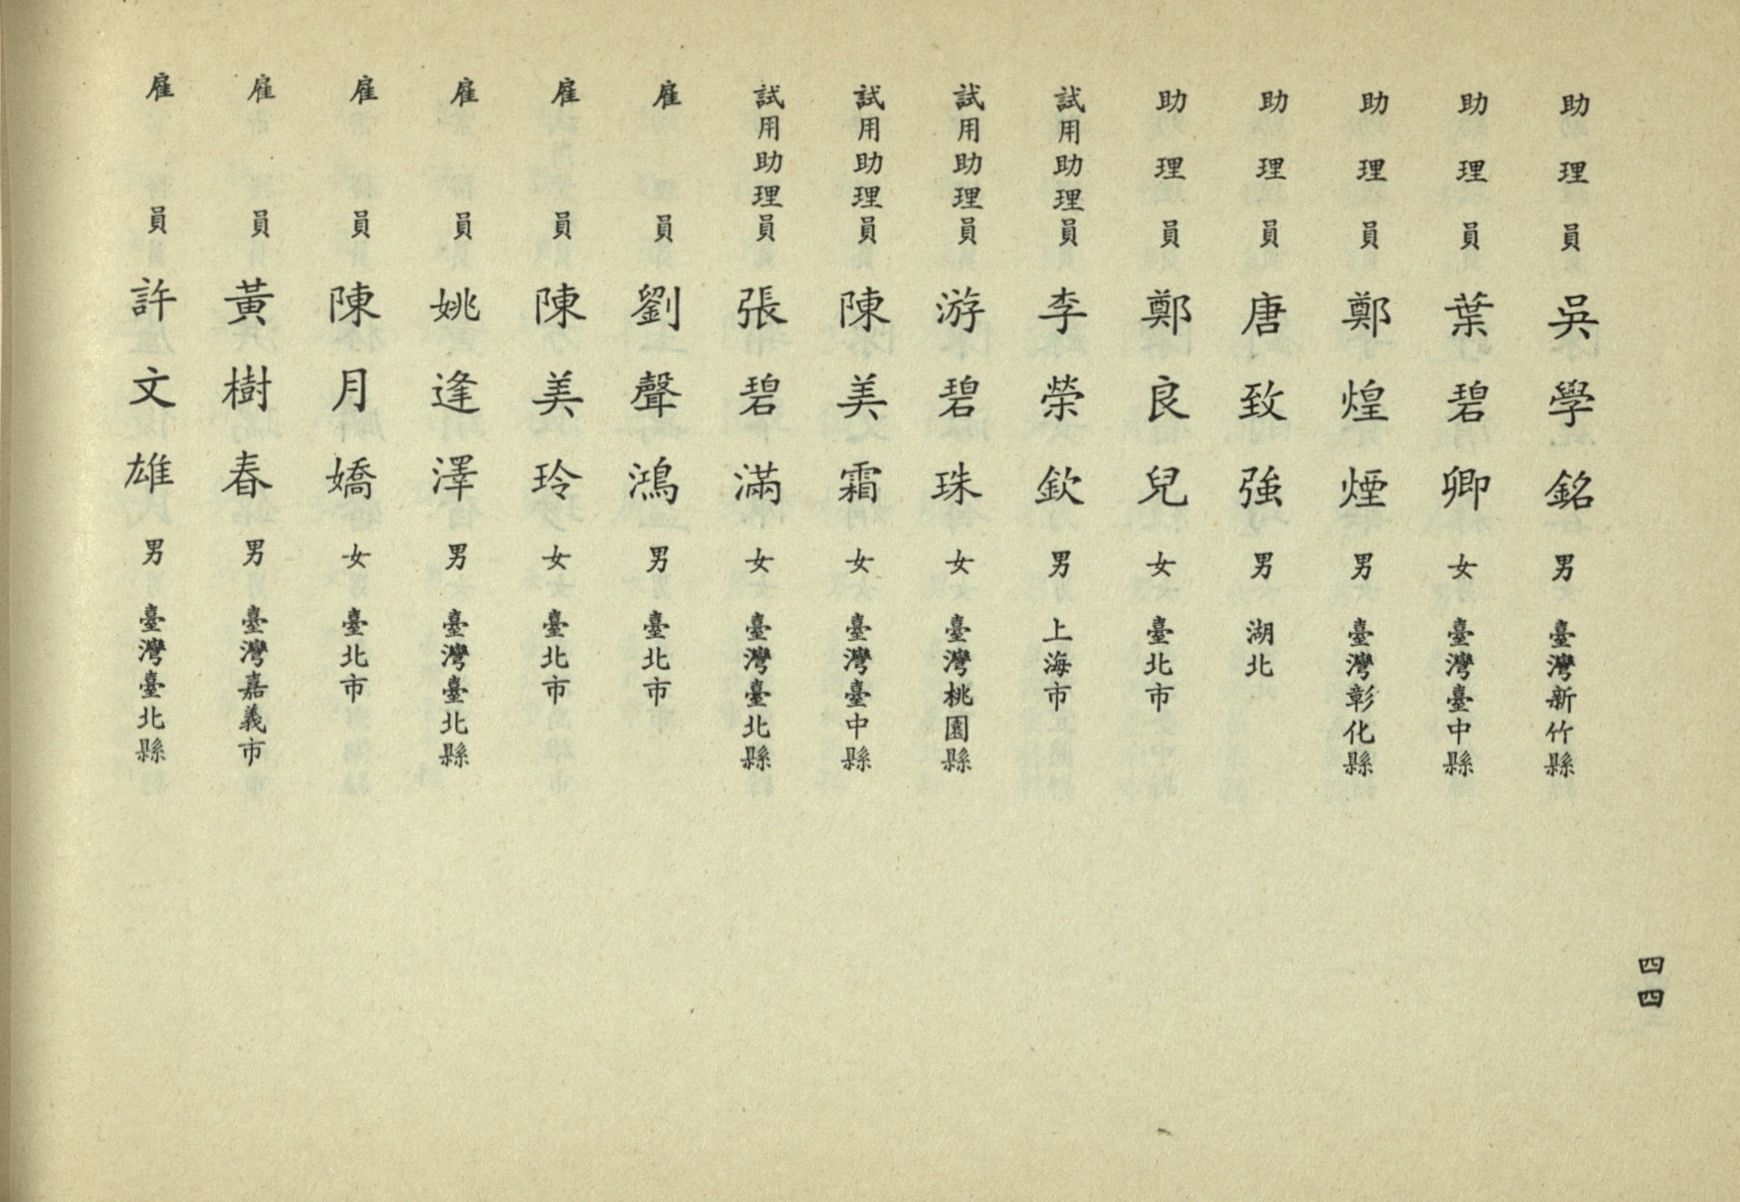 四四
助理員 吳學銘 男 臺灣新竹縣
助理員 葉碧卿 女 臺灣臺中縣
助理員 鄭煌煙 男 臺灣彰化縣
助理員 唐致強 男 湖北
助理員 鄭良兒 女 臺北市
試用助理員 李榮欽 男 上海市
試用助理員 游碧珠 女 臺灣桃園縣
試用助理員 陳美霜 女 臺灣臺中縣
試用助理員 張碧滿 女 臺灣臺北縣
雇員 劉聲鴻 男 臺北市
雇員 陳美玲 女 臺北市
雇員 姚逢澤 男 臺灣臺北縣
雇員 陳月嬌 女 臺北市
雇員 黃樹春 男 臺灣嘉義市
雇員 許文雄 男 臺灣臺北縣